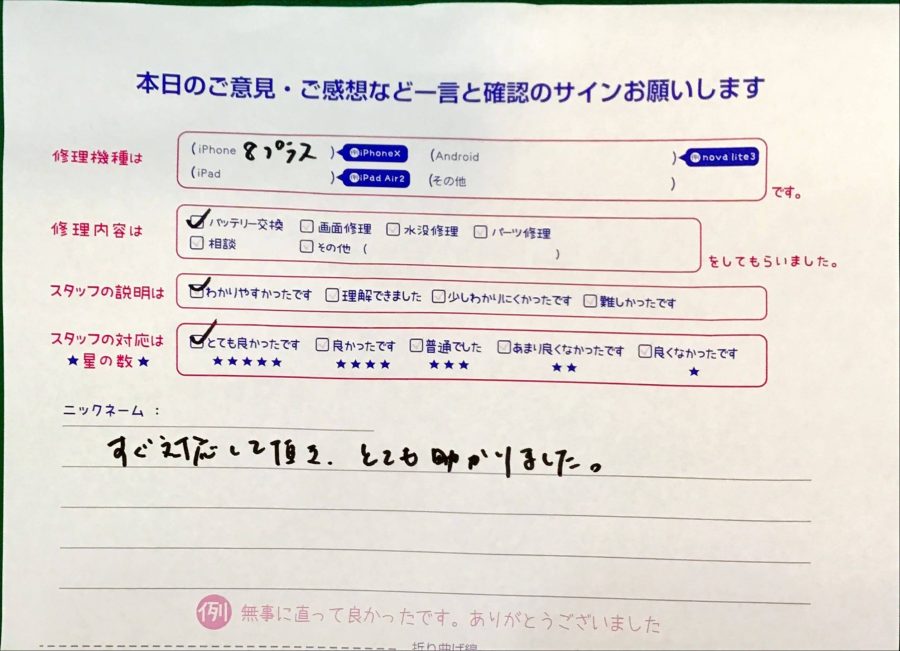 本日のご意見・ご感想など一言と確認のサインお願いします
修理機種は (iPhone 8プラス ) iPhoneX (Android ) nova lite3
(iPad ) iPad Air2 (その他 ) です。
修理内容は バッテリー交換 画面修理 水没修理 パーツ修理
相談 その他 ( ) をしてもらいました。
スタッフの説明は わかりやすかったです 理解できました 少しわかりにくかったです 難しかったです
スタッフの対応は とても良かったです 良かったです 普通でした あまり良くなかったです 良くなかったです
★星の数★ ★★★★★ ★★★★ ★★★ ★★ ★
ニックネーム：
すぐ対応して頂き、とても助かりました。
例 無事に直って良かったです。ありがとうございました
折り曲げ線